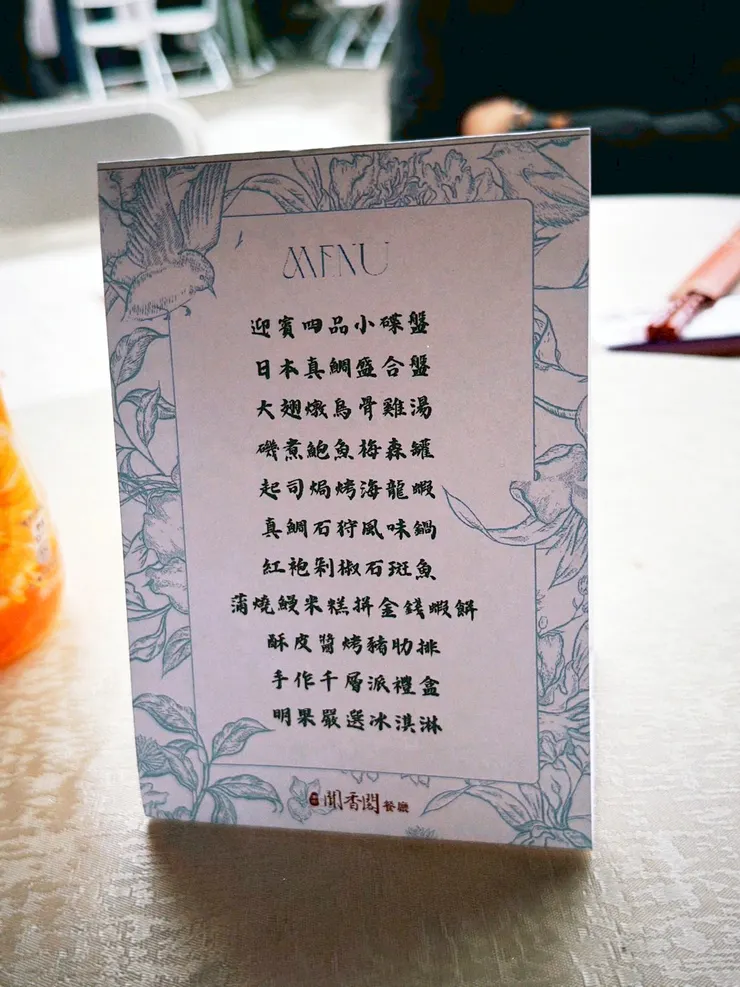 MENU
迎賓四品小碟盤
日本真鯛盛合盤
大翅燉烏骨雞湯
磯煮鮑魚梅森罐
起司焗烤海龍蝦
真鯛石狩風味鍋
紅袍剁椒石斑魚
蒲燒鰻米糕拼金錢蝦餅
酥皮醬烤豬肋排
手作千層派禮盒
明果嚴選冰淇淋
聞香閣餐廳